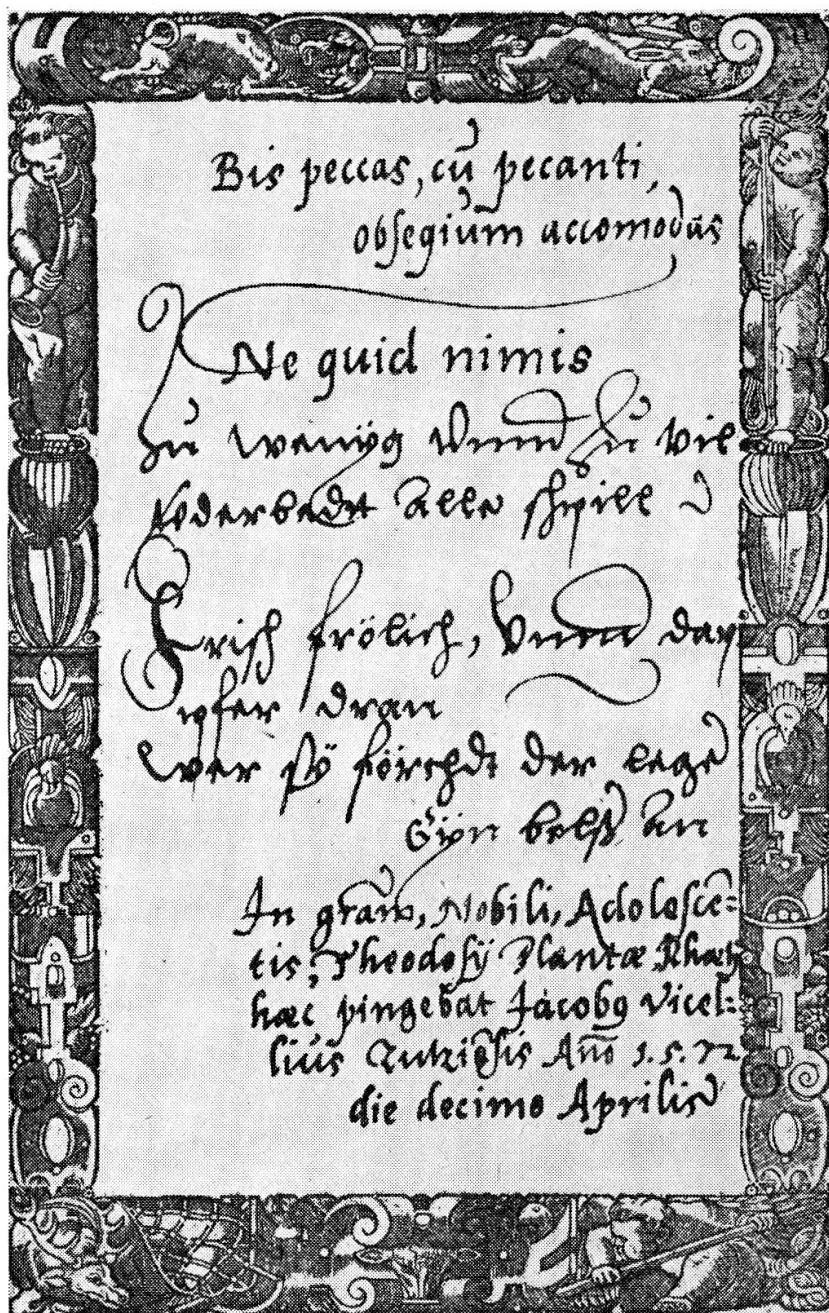 Bis peccas, cū pecanti,
obsegiūm accomodas
Ne quid nimis
Zu wenig Vnnd Zu vil
Verderbedt alle spill
Frisch frölich, Vnnd dap
pfer dran
Wer sÿ förchdt der lege
Eÿn belss an
In gratiā, Nobili, Adolescē=
tis, Theodosÿ Plantæ, Rhæti
hæc pingebat Jacobꝰ Vicel=
liūs Tutziēsis Anō 1.5.72
die decimo Aprilis